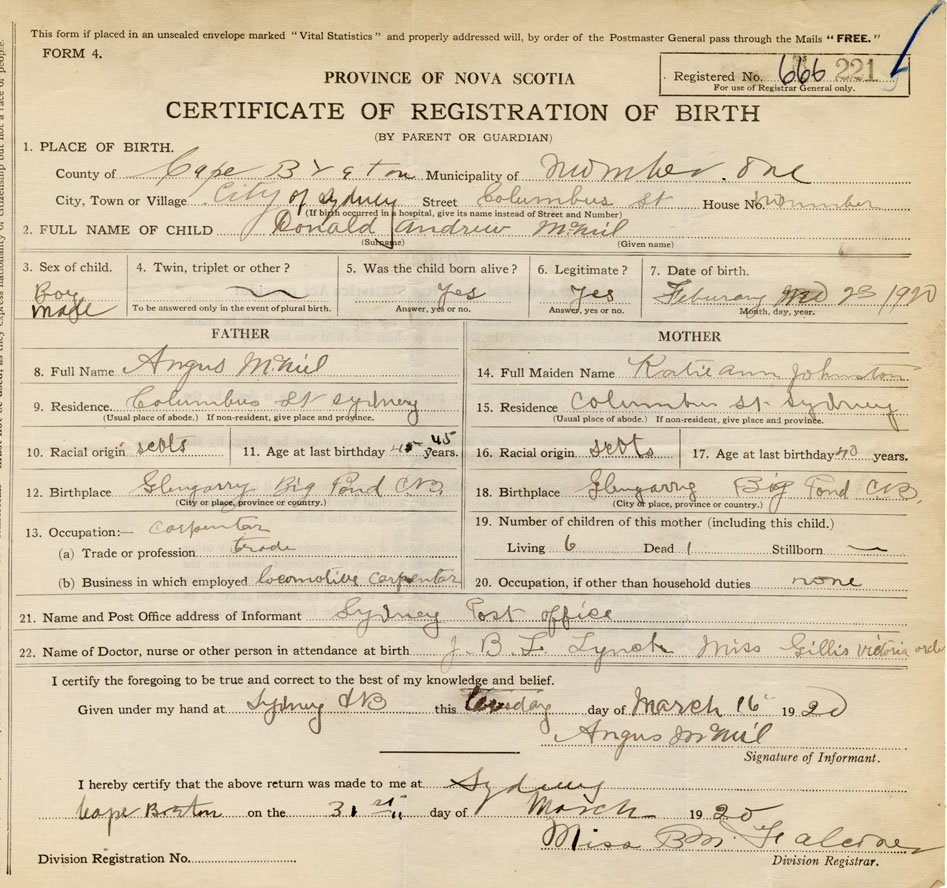 This form if placed in an unsealed envelope marked "Vital Statistics" and properly addressed will, by order of the Postmaster General pass through the Mails "FREE."
FORM 4.
PROVINCE OF NOVA SCOTIA
Registered No. 666 221
For use of Registrar General only.
CERTIFICATE OF REGISTRATION OF BIRTH
(BY PARENT OR GUARDIAN)
1. PLACE OF BIRTH.
County of Cape Breton Municipality of Number. one
City, Town or Village City of Sydney Street Columbus st House No.
(If birth occurred in a hospital, give its name instead of Street and Number)
2. FULL NAME OF CHILD Donald Andrew McNeil
(Surname) (Given name)
3. Sex of child. 4. Twin, triplet or other? 5. Was the child born alive? 6. Legitimate? 7. Date of birth.
Boy
male Yes Yes Feburary 23 1920
To be answered only in the event of plural birth. Answer, yes or no. Answer, yes or no. Month, day, year.
FATHER
8. Full Name Angus McNeil
9. Residence. Columbus st Sydney
(Usual place of abode.) If non-resident, give place and province.
10. Racial origin scots 11. Age at last birthday 45 45 years.
12. Birthplace Glengarry Big Pond C.B.
(City or place, province or country.)
13. Occupation:— Carpenter
(a) Trade or profession trade
(b) Business in which employed locomotive carpentar
MOTHER
14. Full Maiden Name Katie ann Johnston
15. Residence Columbus st Sydney
(Usual place of abode.) If non-resident, give place and province.
16. Racial origin scots 17. Age at last birthday 40 years.
18. Birthplace Glengarry Big Pond CB.
(City or place, province or country.)
19. Number of children of this mother (including this child.)
Living 6 Dead 1 Stillborn —
20. Occupation, if other than household duties none
21. Name and Post Office address of Informant Sydney Post office
22. Name of Doctor, nurse or other person in attendance at birth J. B. Lynch Miss Gillis victoria orde
I certify the foregoing to be true and correct to the best of my knowledge and belief.
Given under my hand at Sydney CB this tuesday day of March 16 1920
Angus McNeil
Signature of Informant.
I hereby certify that the above return was made to me at Sydney
Cape Boston on the 31st day of March 1920
Miss B.M. Falconer
Division Registrar.
Division Registration No.